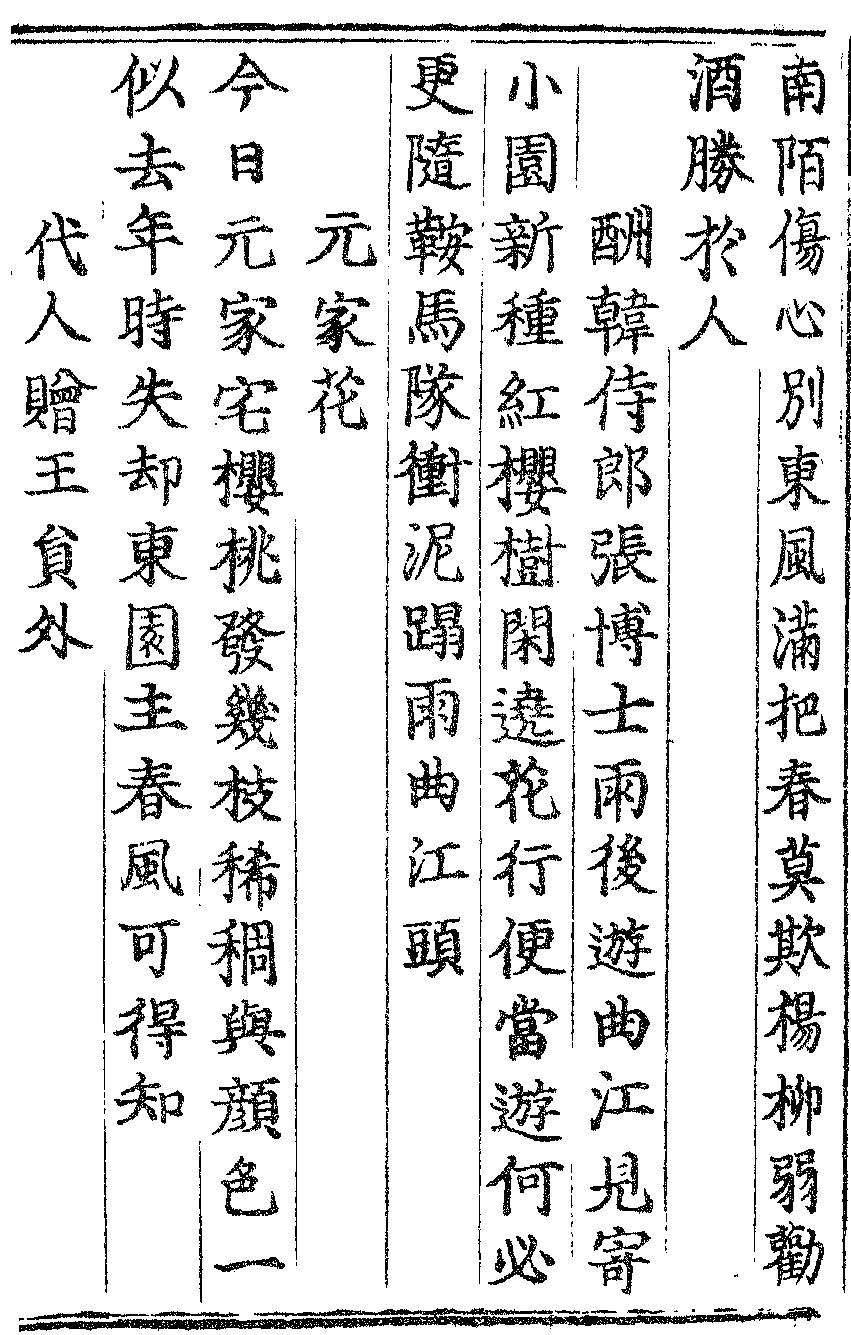 南陌傷心別東風滿把春莫欺楊柳弱勸
酒勝於人
酬韓侍郎張博士雨後遊曲江見寄
小園新種紅櫻樹閑遶花行便當遊何必
更隨鞍馬隊衝泥蹋雨曲江頭
元家花
今日元家宅櫻桃發幾枝稀稠與顔色一
似去年時失却東園主春風可得知
代人贈王貟外